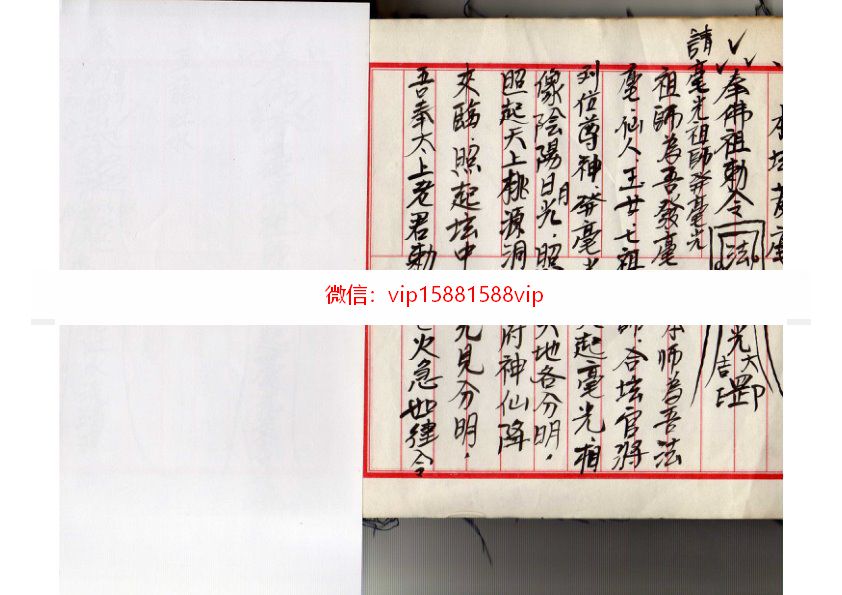 奉佛祖勅令 法 光
請毫光祖師發毫光
祖師為吾發毫 師為吾法
毫.仙人.玉女七祖 師.合坛官將
列位尊神.發毫光 起毫光.相
像陰陽日月光.照 天地各分明.
照起天上桃源洞 府神仙降
來臨.照起坛中 光見分明.
吾奉太上老君勅 火急如律令
微信：vip15881588vip